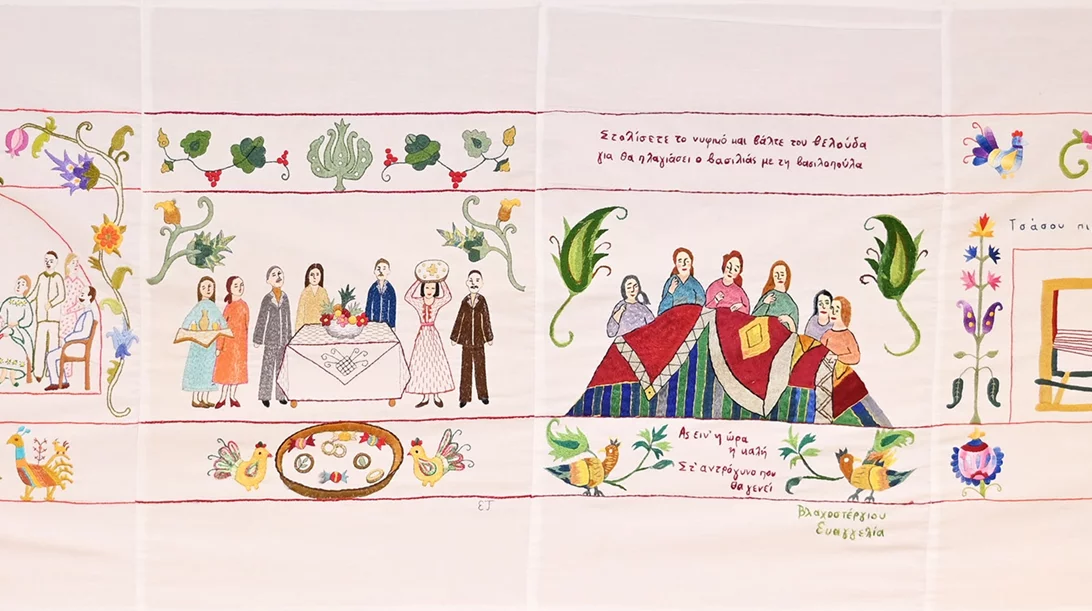 Στολίσετε το νυφικό και βάλτε του βελούδα
για θα πλαγιάσει ο βασιλιάς με τη βασιλοπούλα
Τσάσου πι
Ας ειν' η ώρα
η καλή
Στ' αντρόγυνο που
θα γενεί
ΕΤ
Βλαχοστέργιου
Ευαγγελία